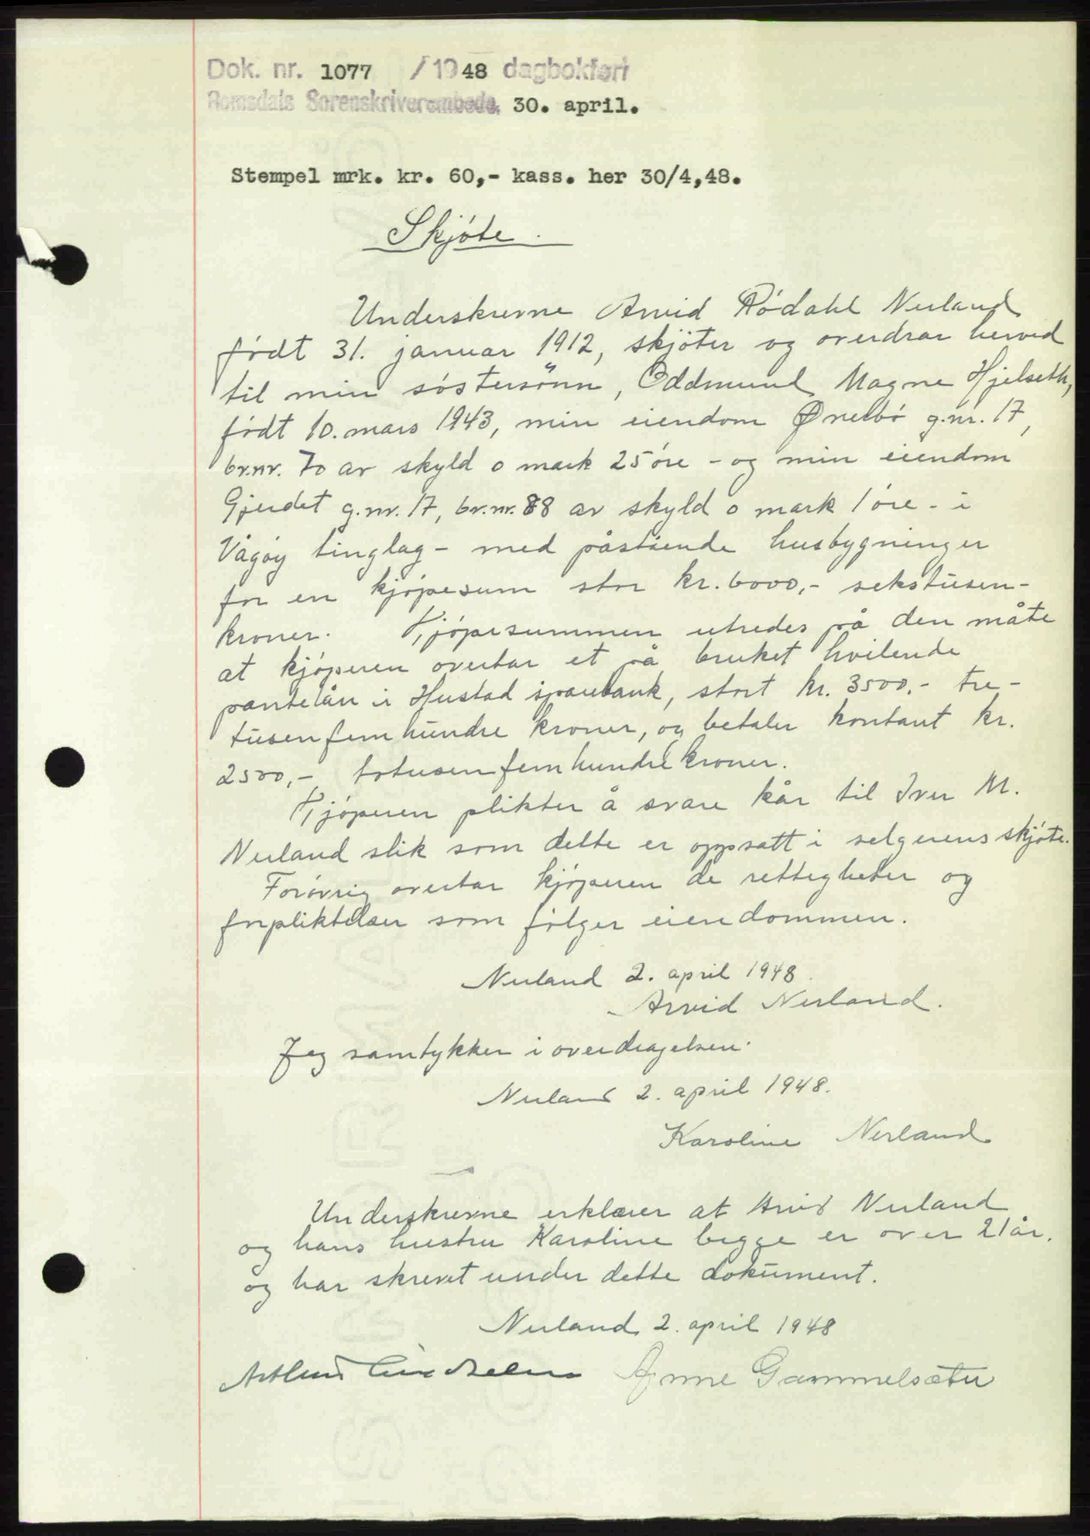 Dok. nr. 1077 / 1948 dagbokført
Romsdals Sorenskriverembede, 30. april.
Stempel mrk. kr. 60,- kass. her 30/4,48.
Skjøte.
Underskrevne Arvid Rødahl Nerland
født 31. januar 1912, skjøter og overdrar herved
til min søstersønn, Oddmund Magne Hjelseth,
født 10. mars 1943, min eiendom Ønelbø g.nr. 17,
br.nr. 70 av skyld 0 mark 25 øre - og min eiendom
Gjerdet g.nr. 17, br.nr. 88 av skyld 0 mark 1 øre - i
Vågøy tinglag - med påstående husbygninger
for en kjøpesum stor kr. 6000,- sekstusen-
kroner. Kjøpesummen utredes på den måte
at kjøperen overtar et på bruket hvilende
pantelån i Hustad sparebank, stort kr. 3500.- tre-
tusenfemhundre kroner, og betaler kontant kr.
2500,- totusenfemhundre kroner.
Kjøperen plikter å svare kår til Iver M.
Nerland slik som dette er oppsatt i selgerens skjøte.
Forøvrig overtar kjøperen de rettigheter og
forpliktelser som følger eiendommen.
Nerland 2. april 1948.
Arvid Nerland.
Jeg samtykker i overdragelsen.
Nerland 2. april 1948.
Karoline Nerland
Underskrevne erklærer at Arvid Nerland
og hans hustru Karoline begge er over 21 år.
og har skrevet under dette dokument.
Nerland 2. april 1948
Gammelsæter